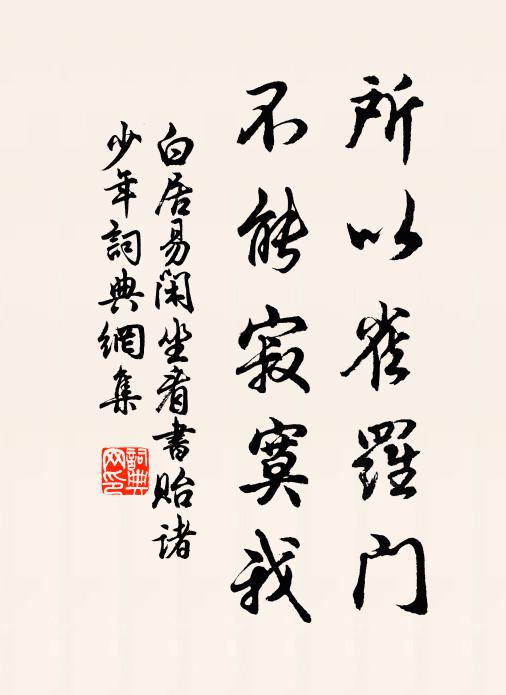 所以雀羅门
不能寂寞我
白居易閑坐看書貽諸
少年詞典網集
詞典
网印